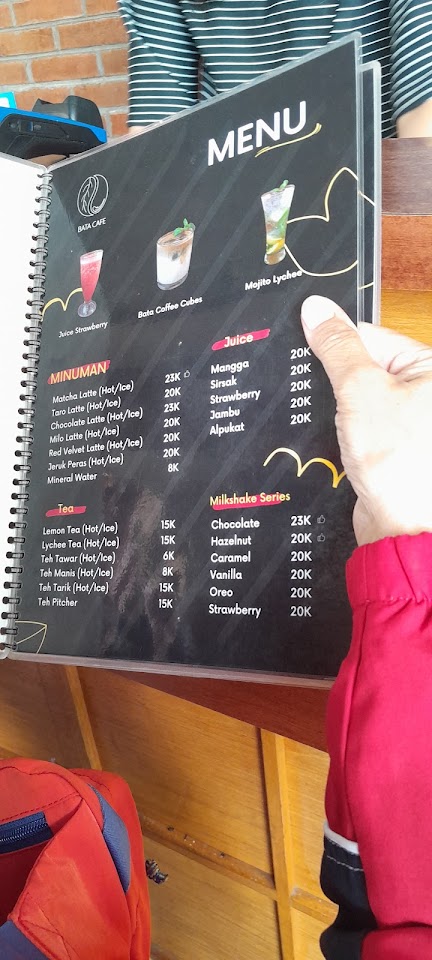 MENU
BATA CAFE
Juice Strawberry
Bata Coffee Cubes
Mojito Lychee
MINUMAN
Matcha Latte (Hot/Ice) 23K
Taro Latte (Hot/Ice) 20K
Chocolate Latte (Hot/Ice) 23K
Milo Latte (Hot/Ice) 20K
Red Velvet Latte (Hot/Ice) 20K
Jeruk Peras (Hot/Ice) 20K
Mineral Water 8K
Tea
Lemon Tea (Hot/Ice) 15K
Lychee Tea (Hot/Ice) 15K
Teh Tawar (Hot/Ice) 6K
Teh Manis (Hot/Ice) 8K
Teh Tarik (Hot/Ice) 15K
Teh Pitcher 15K
Juice
Mangga 20K
Sirsak 20K
Strawberry 20K
Jambu 20K
Alpukat 20K
Milkshake Series
Chocolate 23K
Hazelnut 20K
Caramel 20K
Vanilla 20K
Oreo 20K
Strawberry 20K